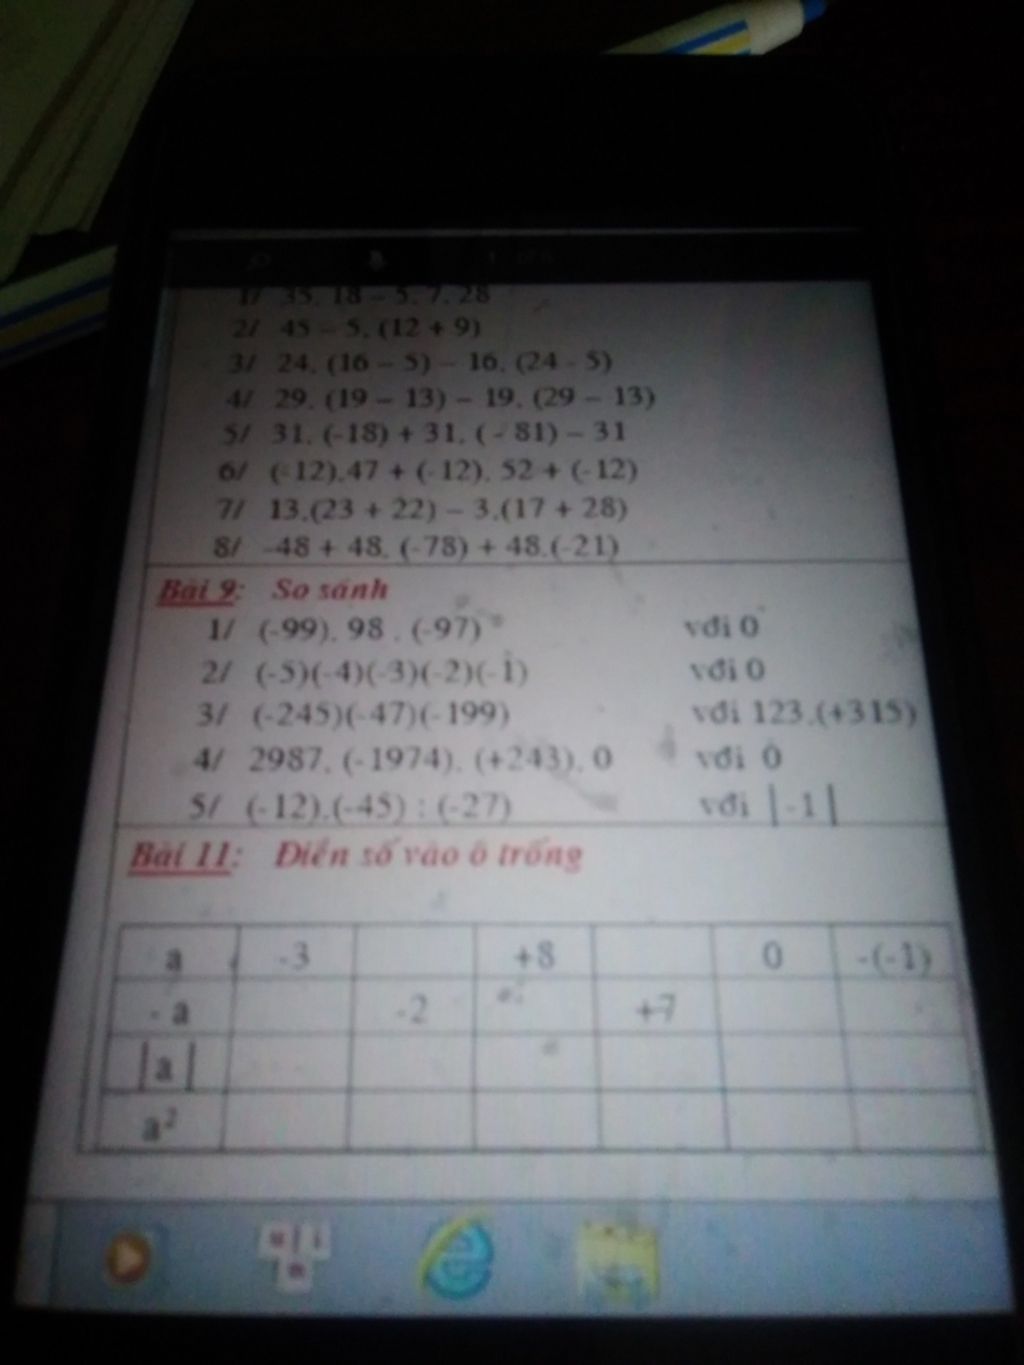 1/ 35. 18 – 5. 7. 28
2/ 45 – 5. (12 + 9)
3/ 24. (16 – 5) – 16. (24 - 5)
4/ 29. (19 – 13) – 19. (29 – 13)
5/ 31. (-18) + 31. ( - 81) – 31
6/ (-12).47 + (-12). 52 + (-12)
7/ 13.(23 + 22) – 3.(17 + 28)
8/ -48 + 48. (-78) + 48.(-21)
Bài 9: So sánh
1/ (-99). 98 . (-97) với 0
2/ (-5)(-4)(-3)(-2)(-1) với 0
3/ (-245)(-47)(-199) với 123.(+315)
4/ 2987. (-1974). (+243). 0 với 0
5/ (-12).(-45) : (-27) với | -1 |
Bài 11: Điền số vào ô trống
a -3 +8 0 -(-1)
- a -2 +7
| a |
a²